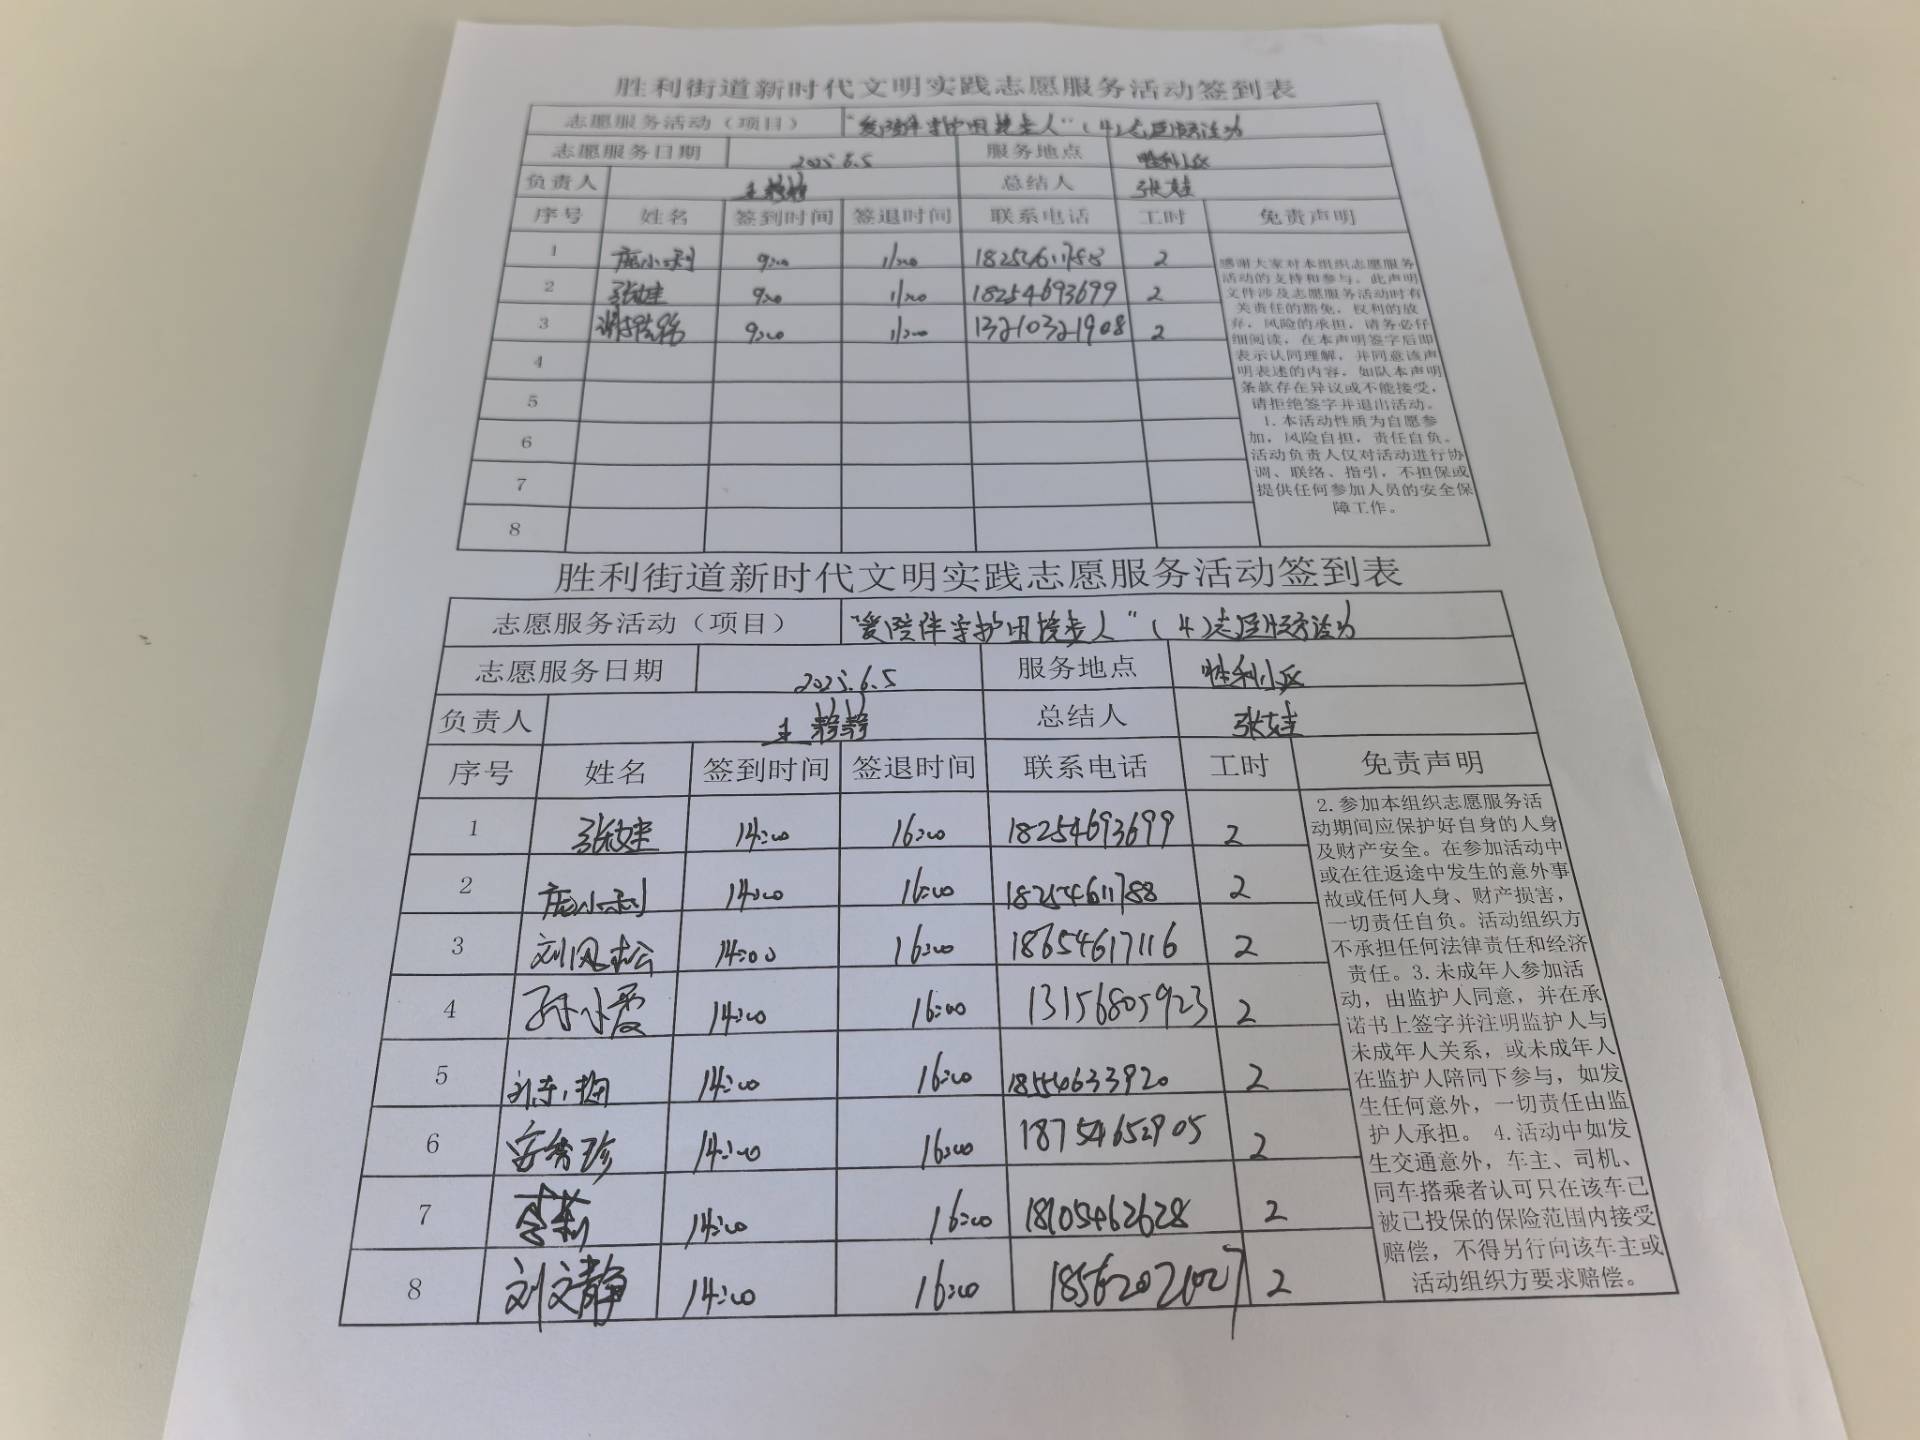 胜利街道新时代文明实践志愿服务活动签到表
志愿服务活动（项目） "爱陪伴守护困境老人"（4）志愿服务活动
志愿服务日期 2025.6.5 服务地点 胜利小区
负责人 王静静 总结人 张娃
序号 姓名 签到时间 签退时间 联系电话 工时 免责声明
1 庞小利 9:00 11:00 18254611788 2
2 张娃 9:00 11:00 18254693699 2
3 9:00 11:00 13210321908 2
4
5
6
7
8
感谢大家对本组织志愿服务
活动的支持和参与。此声明
文件涉及志愿服务活动时有
关责任的豁免，权利的放
弃，风险的承担，请务必仔
细阅读，在本声明签字后即
表示认同理解，并同意该声
明表述的内容，如队本声明
条款存在异议或不能接受，
请拒绝签字并退出活动。
1.本活动性质为自愿参
加，风险自担，责任自负。
活动负责人仅对活动进行协
调、联络、指引，不担保或
提供任何参加人员的安全保
障工作。
胜利街道新时代文明实践志愿服务活动签到表
志愿服务活动（项目） "爱陪伴守护困境老人"（4）志愿服务活动
志愿服务日期 2025.6.5 服务地点 胜利小区
负责人 王静静 总结人 张娃
序号 姓名 签到时间 签退时间 联系电话 工时 免责声明
1 张娃 14:00 16:00 18254693699 2
2 庞小利 14:00 16:00 18254611788 2
3 刘凤松 14:00 16:00 18654617116 2
4 孙小霞 14:00 16:00 13156805923 2
5 14:00 16:00 18554633920 2
6 安秀珍 14:00 16:00 18754652905 2
7 李莉 14:00 16:00 18105462628 2
8 刘文静 14:00 16:00 2
2.参加本组织志愿服务活
动期间应保护好自身的人身
及财产安全。在参加活动中
或在往返途中发生的意外事
故或任何人身、财产损害，
一切责任自负。活动组织方
不承担任何法律责任和经济
责任。3.未成年人参加活
动，由监护人同意，并在承
诺书上签字并注明监护人与
未成年人关系，或未成年人
在监护人陪同下参与，如发
生任何意外，一切责任由监
护人承担。 4.活动中如发
生交通意外，车主、司机、
同车搭乘者认可只在该车已
被已投保的保险范围内接受
赔偿，不得另行向该车主或
活动组织方要求赔偿。